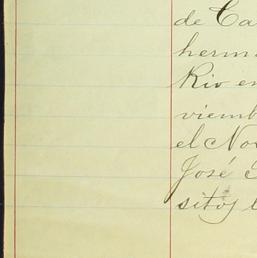 de Ca
herm
Rio en
viemb
el No
José
sitos